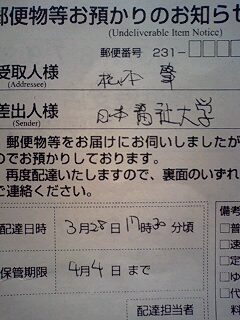 郵便物等お預かりのお知らせ
(Undeliverable Item Notice)
郵便番号 231-
受取人様
(Addressee)
松本 肇
差出人様
(Sender)
日本福祉大学
郵便物等をお届けにお伺いしましたが
のでお預かりしております。
再度配達いたしますので、裏面のいずれ
ご連絡ください。
配達日時 3月28日 17時30分頃
保管期限 4月4日まで
備考
配達担当者